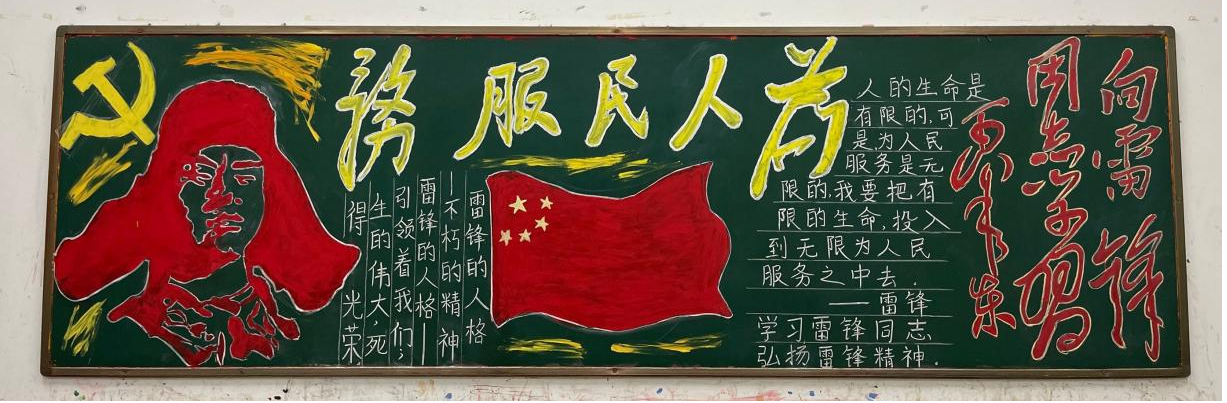 向雷锋
同志学习
毛泽东
為人民服務
人的生命是
有限的,可
是为人民
服务是无
限的,我要把有
限的生命,投入
到无限为人民
服务之中去.
——雷锋
学习雷锋同志
弘扬雷锋精神.
雷锋的人格
一不朽的精神
雷锋的人格—
引领着我们;
生的伟大,死
得 光荣